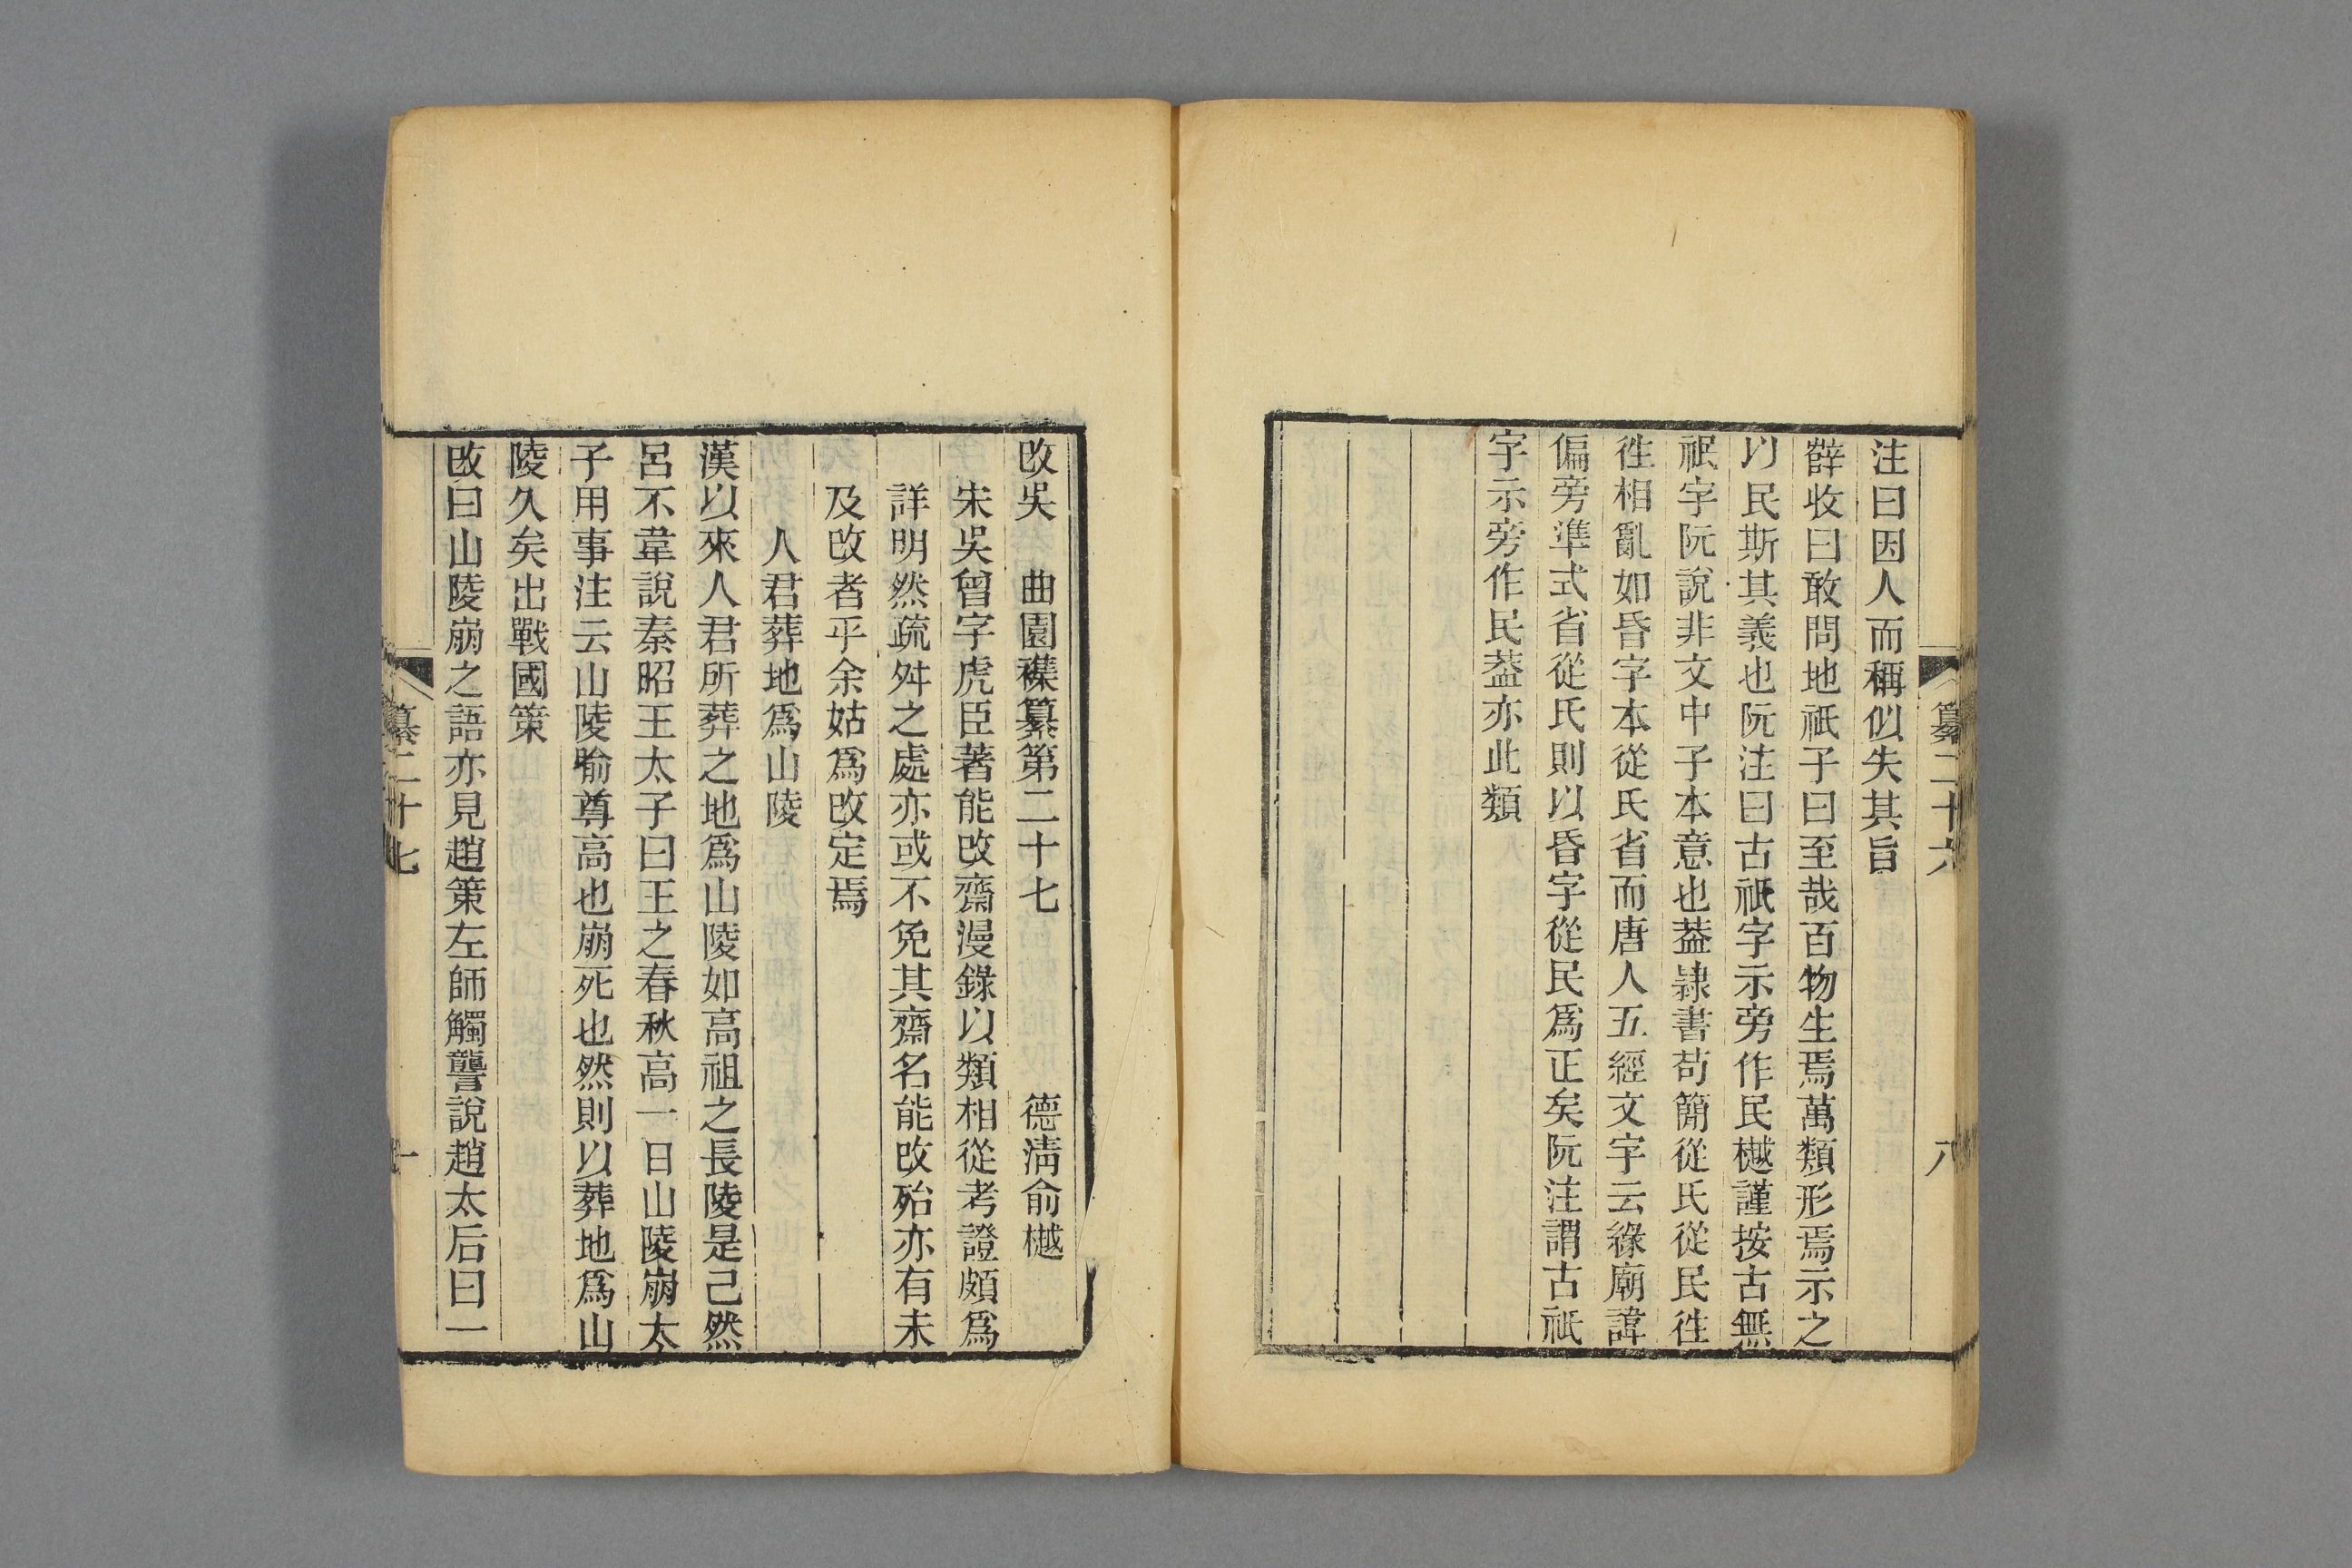 注曰因人而稱似失其旨
薛收曰敢問地祇子曰至哉百物生焉萬類形焉示之
以民斯其義也阮注曰古祇字示旁作民樾謹按古無
䘽字阮說非文中子本意也葢隷書苟簡從氏從民徃
徃相亂如昏字本從氏省而唐人五經文字云緣廟諱
偏旁準式省從氏則以昏字從民爲正矣阮注謂古祇
字示旁作民葢亦此類
纂二十六
八
攺吳 曲園襍纂第二十七 德淸俞樾
宋吳曾字虎臣著能攺齋漫錄以類相從考證頗爲
詳明然疏舛之處亦或不免其齋名能攺殆亦有未
及攺者乎余姑爲攺定焉
人君葬地爲山陵
漢以來人君所葬之地爲山陵如高祖之長陵是己然
呂不韋說秦昭王太子曰王之春秋高一日山陵崩太
子用事注云山陵喻尊高也崩死也然則以葬地爲山
陵久矣出戰國策
攺曰山陵崩之語亦見趙策左師觸讋說趙太后曰一
纂二十七
一